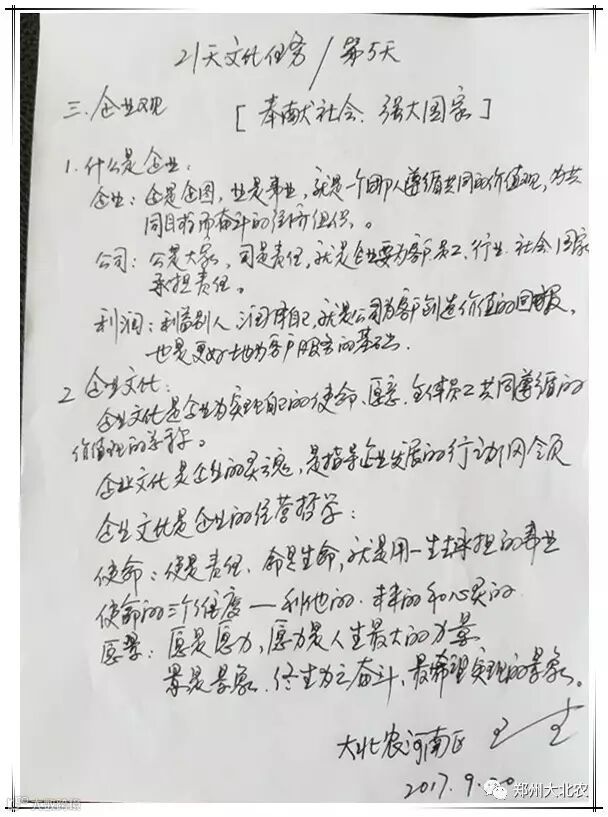 21天文化任务/第5天
三.企业观 [奉献社会.强大国家]
1.什么是企业:
企业:企是企图,业是事业,就是一个团队遵循共同的价值观,为共
同目标而奋斗的经济组织.。
公司:公是大家,司是责任,就是企业要为客户员工、行业、社会国家
承担责任。
利润:利益别人 润泽自己,就是公司为客户创造价值的回报,
也是更好地为客户服务的基础.
2.企业文化:
企业文化是企业为实现自己的使命、愿景.全体员工共同遵循的
价值观的总称。
企业文化是企业的灵魂,是指导企业发展的行动纲领
企业文化是企业的经营哲学:
使命:使是责任.命是生命,就是用一生去承担的事业
使命的三个维度—利他的.未来的和心灵的.
愿景:愿是愿力,愿力是人生最大的力量
景是景象.终生为之奋斗、最希望实现的景象。
大北农河南区 王
2017.9.20
郑州大北农